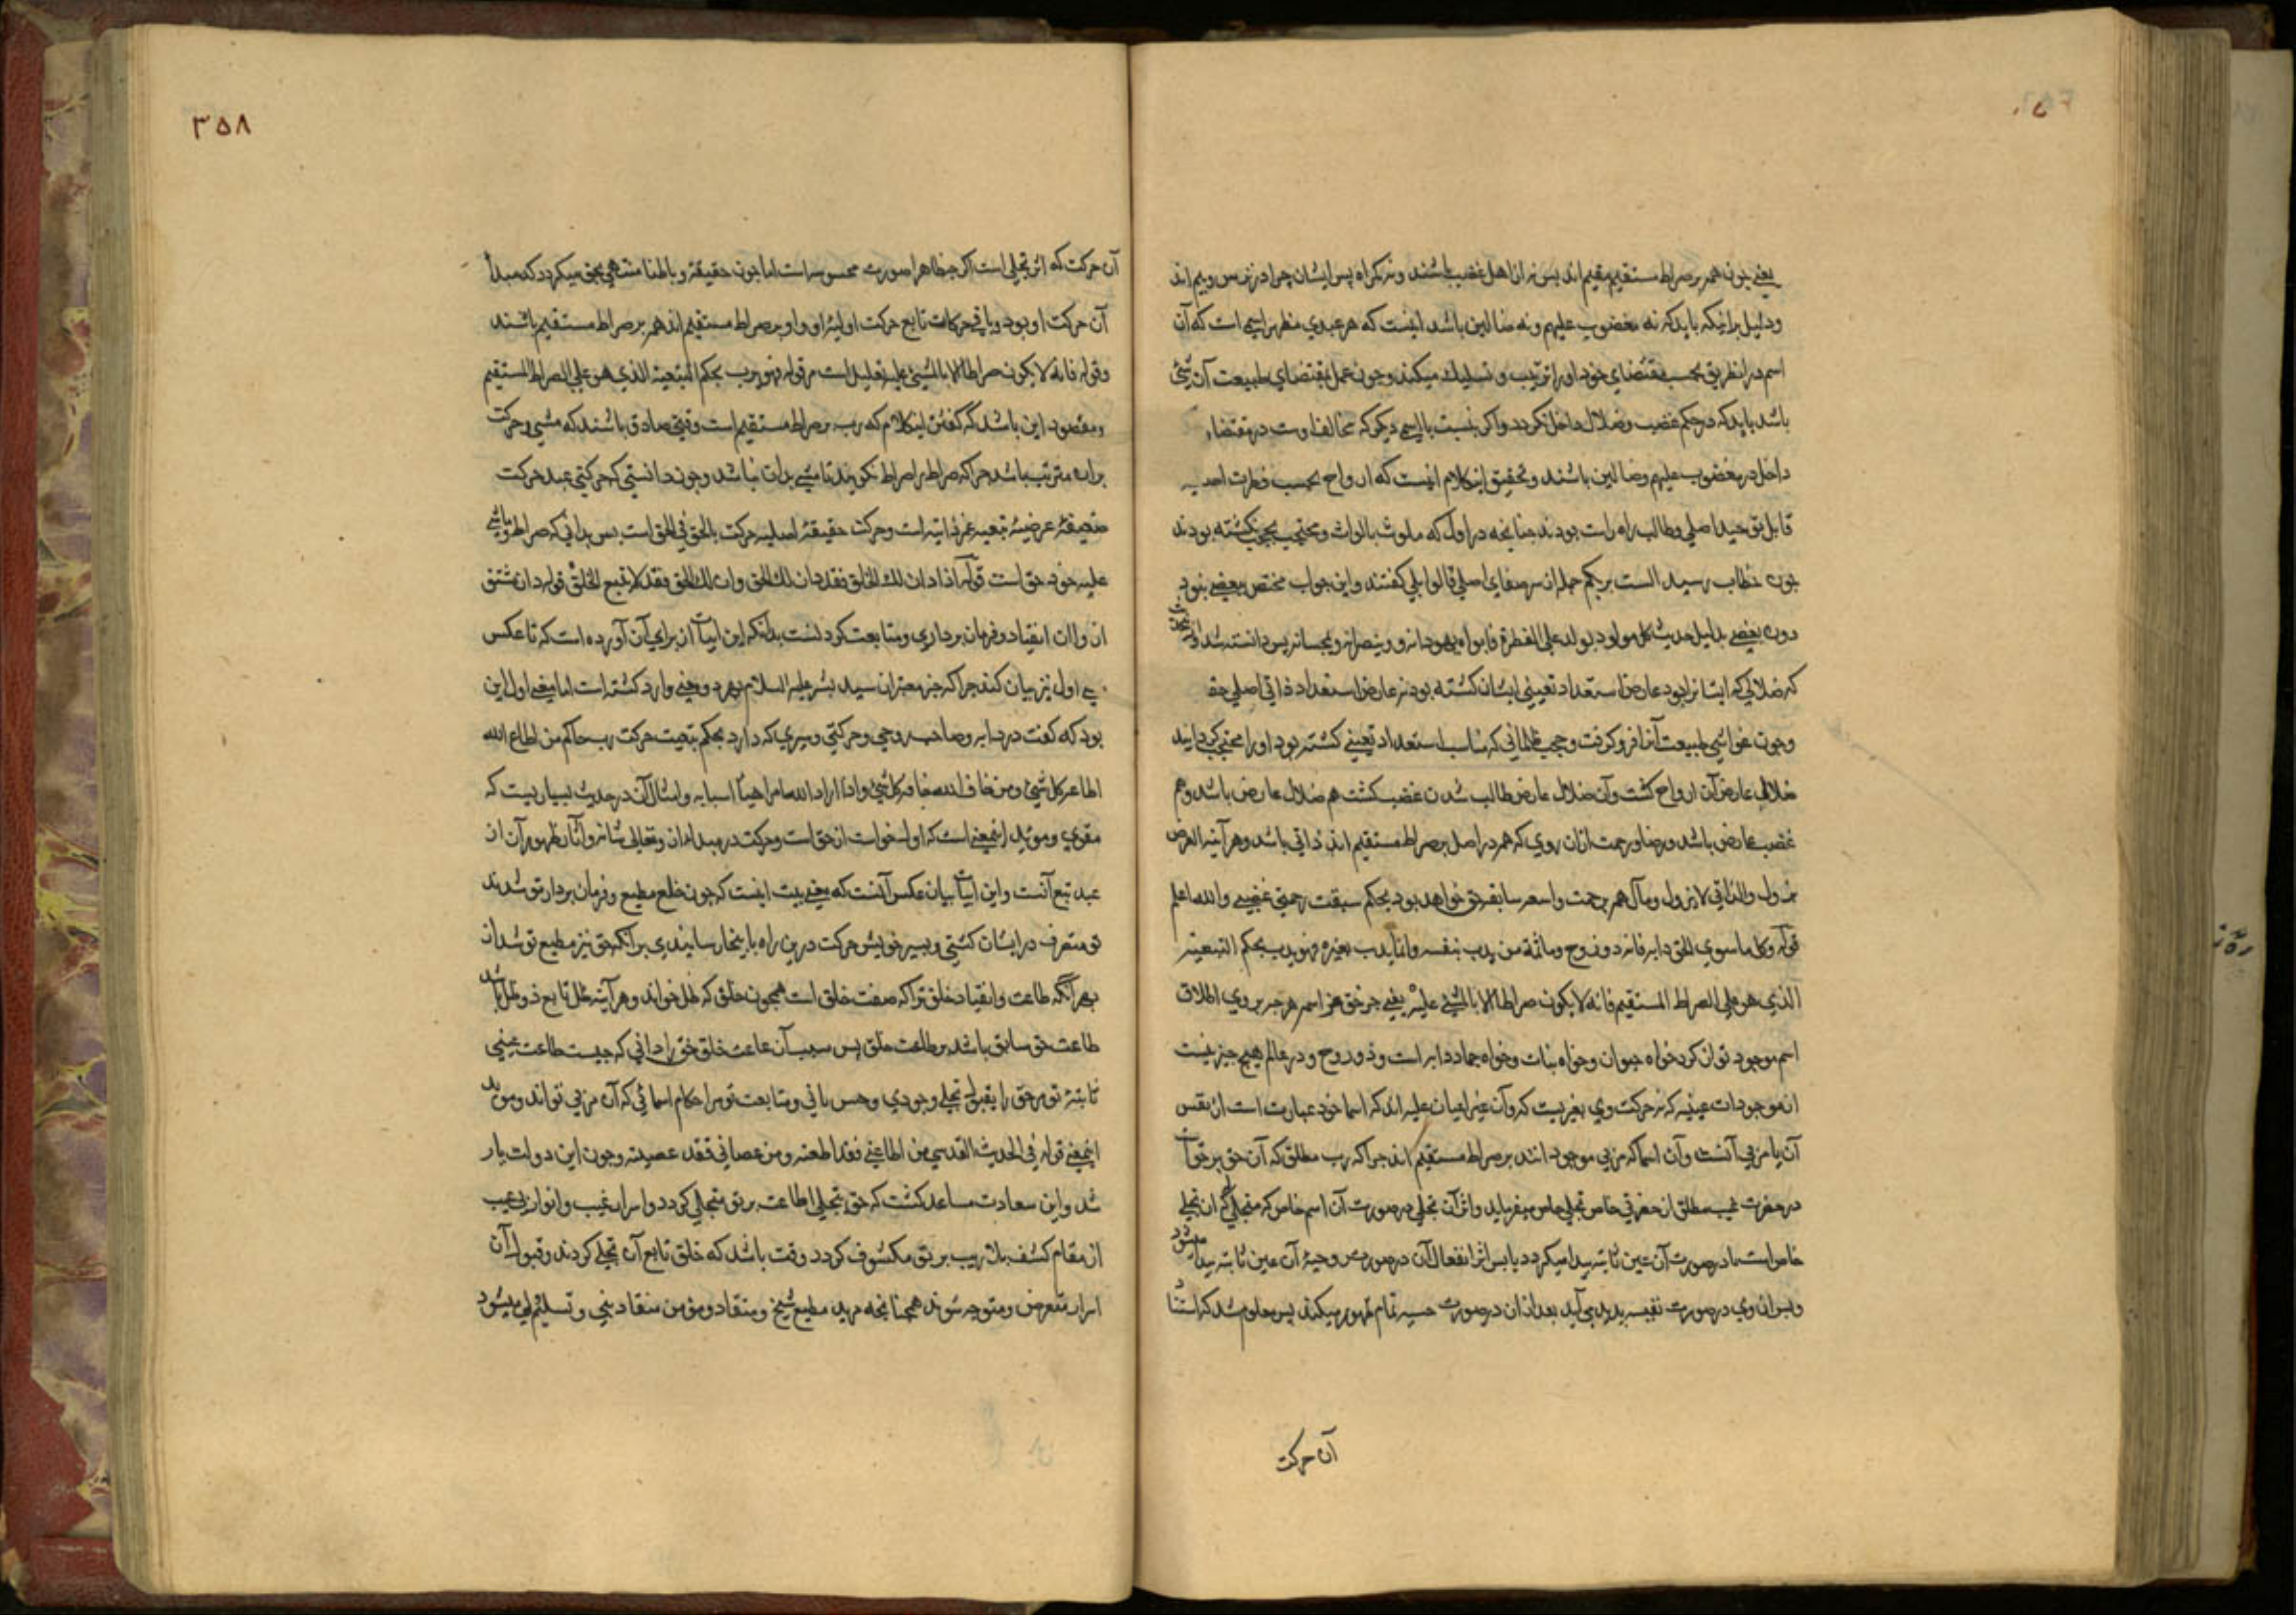 یعنی چون همه بر صراط مستقیم مقیم اند پس نه از اهل غضب باشند و نه گمراه پس ایشان چرا در
و دلیل برانکه باید که نه مغضوب علیهم و نه ضالین باشد اینست که هر عبدی مظهر اسمی است که آن
اسم در انطریق بحسب مقتضای خود او را تربیت و تسلیک میکند و چون عمل بمقتضای طبیعت آن شئ
باشد باید که در حکم غضب و ضلال داخل نکردد و اکر بنسبت با اسمی دیکر که مخالف اوست در مقتضاء
داخل در مغضوب علیهم و ضالین باشند و تحقیق اینکلام اینست که ارواح بحسب فطرت احدیه
قابل توحید اصلی و طالب راه راست بودند چنانچه در اول که ملوث بالواث و محتجب بحجب نکشته بودند
چون خطاب رسید الست بربکم جمله از سر صفای اصلی قالوا بلی کفتند و این جواب مختص ببعضی نبود
دون بعضی بدلیل حدیث کل مولود یولد علی الفطرة فابواه یهودانه و ینصرانه و یمجسانه پس دانسته شد
که ضلالی که ایشانرا بود عارض استعداد تعینی ایشان کشته بود نه عارض استعداد ذاتی اصلی حقـ
وچون غواشی طبیعت آنرا فرو کرفت و حجب ظلمانی که مناسب استعداد تعینی کشته بود او را محتجب کردانید
ضلال عارض آن ارواح کشت و آن ضلال عارض طالب شدن غضب کشت هم ضلال عارض باشد و هم
غضب عارض باشد و رضا و رحمت ازان روی که همه در اصل بر صراط مستقیم اند ذاتی باشد و هر آینه العرض
یزول والذاتی لایزول و مآل همه برحمت واسعه سابقه حق خواهد بود بحکم سبقت رحمتی غضبی والله اعلم
قوله وکل ما سوی الحق دابه فانه ذو روح وما ثمة من یدب بنفسه وانما یدب بغیره فهو یدب بحکم التبعیة
الذی هو علی الصراط المستقیم فانه لا یکون صراطا الا بالمشی علیه یعنی جز حق عز اسمه هر چه بر وی اطلاق
اسم موجود توان کرد خواه حیوان و خواه نبات و خواه جماد دابه است و ذو روح و در عالم هیچ چیز نیست
از موجودات عینیه که نه حرکت وی بغیریست که و آن غیر اعیان علیه اند که اسما خود عبارت است از نفس
آن یا مربی آنست و آن اسما که مربی موجودانند بر صراط مستقیم اند چرا که رب مطلق که آن حق
در حضرت غیب مطلق از حضرتی خاص تجلی خاص میفرماید و اثر آن تجلی در صورت آن اسم خاص که متجلی آن تجلی
خاص است در صورت آن عین ثابته پیدا میکردد یا پس اثر انفعال آن در صورت روحیهٔ آن عین ثابته پیدا میشود
و پس از وی در صورت نفسیه پدید می آید بعد ازان در صورت حسیه تمام ظهور میکند پس معلوم شد که
آن حرکت
۳۵۸
آن حرکت که اثر تجلی است اکر چه ظاهرا صورت محسوسه است اما چون حقیقة و باطنا منتهی بحق میکردد که مبدأ
آن حرکت او بود و باقی حرکات تابع حرکت اولیهٔ او و او بر صراط مستقیم اند همه بر صراط مستقیم باشند
وقوله فانه لا یکون صراطا الا بالمشی علیه تعلیل است مر قوله فهو یدب بحکم التبعیة الذی هو علی الصراط المستقیم
و مقصود این باشد که کفتن اینکلام که رب بر صراط مستقیم است وقتی صادق باشد که مشی و حرکت
بران مترتب باشد چرا که صراط را صراط نکویند تا مشی بدان نباشد و چون دانستی که حرکتی عبد حرکت
ضعیفهٔ عرضیهٔ تبعیه غیر ذاتیه است و حرکت حقیقهٔ اصلیه حرکت بالحق فی الحق است پس بدانی که صراط و ماشی
علیه خود حق است قوله اذا دان لک الخلق فقد دان لک الحق وان دان لک الحق فقد لا یتبع الخلق قوله دان مشتق
از و ان انقیاد و فرمان برداری و متابعت کردنست بدانکه این ابیات از برای آن آورده است که تا عکس
اول نیز بیان کند چرا که خبر معتبران سید بشر علیه السلام بهر دو معنی وارد کشته است اما معنی اول این
بود که کفت در دابه و صاحب روحی و حرکتی و سیری که دارد بحکم تبعیت حرکت رب حاکم من اطاع الله
اطاعه کل شئ و من خاف الله خافه کل شئ و اذا اراد الله امرا هیأ اسبابه و امثال آن در حدیث بسیاریست که
مقوی و مؤید اینمعنی است که اول خواست از حق است و حرکت در مبدأ ازان و تعالی شانه و آثار ظهور آن از
عبد تبع آنست و این ابیات بیان عکس آنست که معنی بیت اینست که چون خلع مطیع و فرمان بردار تو شدند
تو متصرف در ایشان کشتی و بسیر خویش حرکت درین راه باینجا رسانیدی برانکه حق نیز مطیع تو شد از
بهر آنکه طاعت و انقیاد خلق تراکه صفت خلق است همچون خلق که ظل خواند و هر آینه ظل تابع ذو ظل باشد
طاعت حق سابق باشد بر طاعت خلق پس سبب آن طاعت خلق حق را دانی که چیست طاعت عینی
ثابتهٔ تو مر حق را بقبول تجلی وجودی و حس باقی و متابعت تو مر احکام اسمائی که آن مربی تواند و مؤید
اینمعنی قوله فی الحدیث القدسی من اطاعنی فقد اطعته و من عصانی فقد عصیته و چون این دولت یار
شد و این سعادت مساعد کشت که حق بتجلی اطاعت بر تو متجلی کردد و اسرار غیب و انوار
از مقام کشف بلا ریب بر تو مکشوف کردد وقت باشد که خلق تابع آن تجلی کردند و قبول آن
اسرار متعرض و متوجه شوند همچنانچه مرید مطیع شیخ و منقاد و مؤمن منقاد نبی و تسلیم میشود